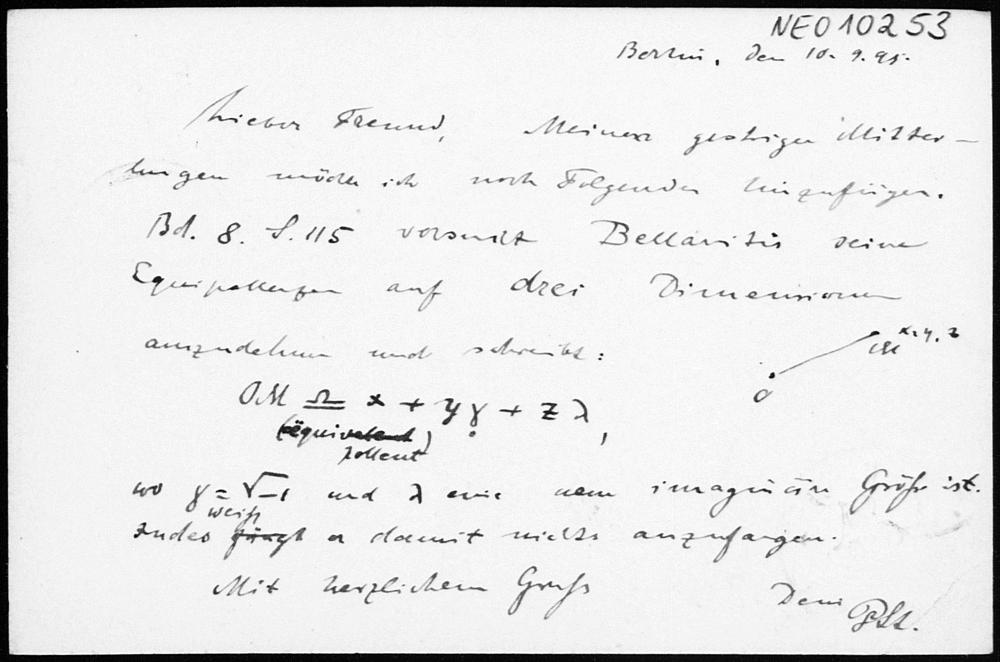 NEO 10253
Berlin, den 10. 9. 95.
Lieber Freund, Meiner gestrigen Mittei-
lungen möchte ich noch Folgendes hinzufügen.
Bd. 8. S. 115 versucht Bellavitis seine
Equipollenzen auf drei Dimensionen
auszudehnen und schreibt:
O M x, y, z
OM ♎ x + y γ + z λ,
(äquivalent)
pollent
wo γ = √-1 und λ eine neue imaginäre Größe ist.
weiß
Indes fängt er damit nichts anzufangen.
Mit herzlichem Gruß
Dein P. St.